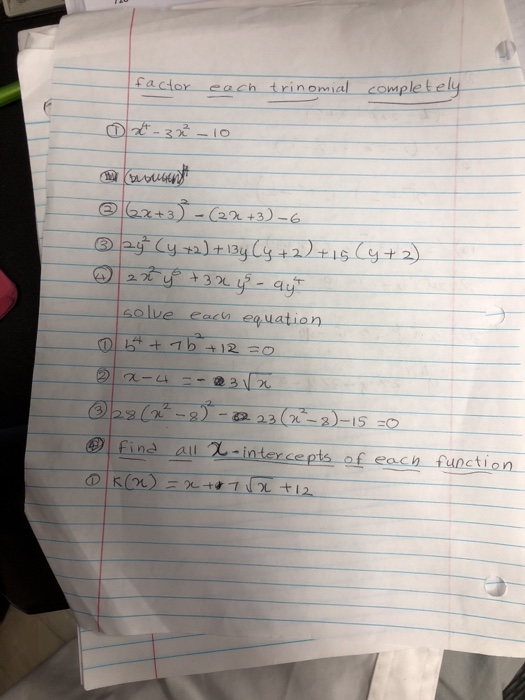 factor each trinomial completely
① x⁴ - 3x² - 10
② (2x+3)² - (2x+3) - 6
③ 2y² (y+2) + 13y (y+2) + 15 (y+2)
④ 2x²y⁶ + 3xy⁵ - 9y⁴
solve each equation
① b⁴ + 7b² + 12 = 0
② x - 4 = - 3√x
③ 28 (x² - 8)² - 23 (x² - 8) - 15 = 0
Find all x-intercepts of each function
① K(x) = x + 7√x + 12